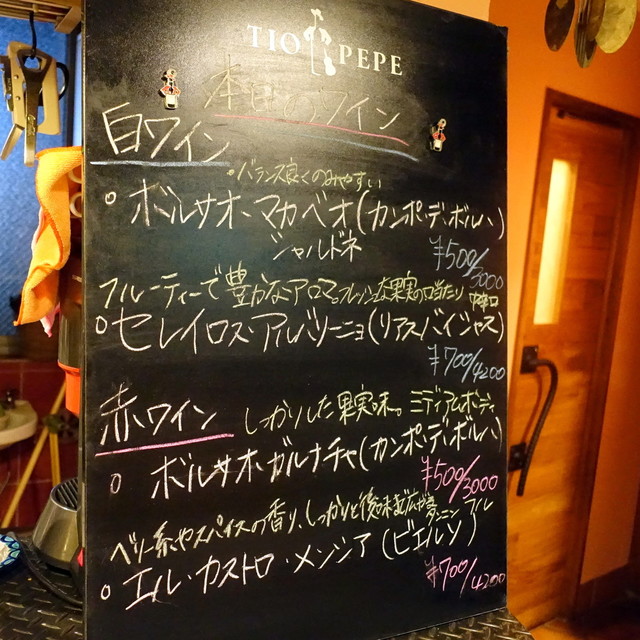 TIO PEPE
本日のワイン
白ワイン
・バランス良くのみやすい
○ボルサオ・マカベオ(カンポ・デ・ボルハ)
シャルドネ
¥500/3000
フルーティーで豊かなアロマ。フレッシュな果実の口当たり 中辛口
○セレイロス・アルバリーニョ(リアスバイシャス)
¥700/4200
赤ワイン しっかりした果実味。ミディアムボディ
○ボルサオ・ガルナチャ(カンポ・デ・ボルハ)
¥500/3000
ベリー系やスパイスの香り、しっかりと後味まで広がる タンニン フル
○エル・カストロ・メンシア(ビエルソ)
¥700/4200